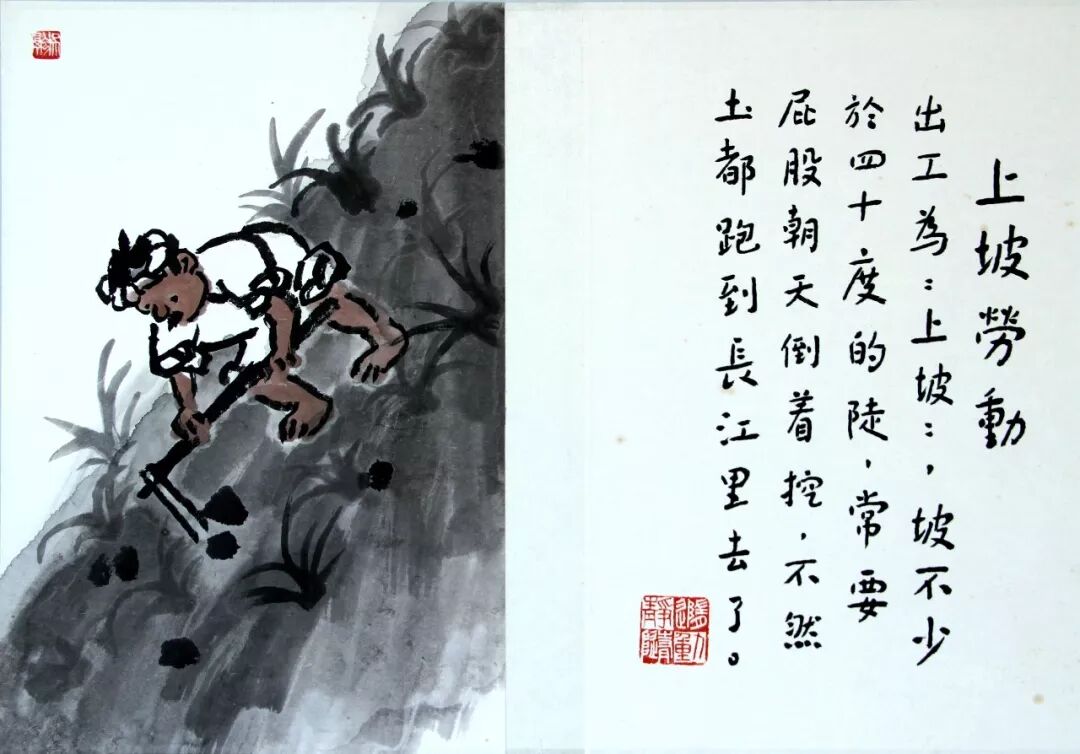 上坡勞動
出工為：上坡：，坡不少
於四十度的陡，常要
屁股朝天倒着挖，不然
土都跑到長江里去了。